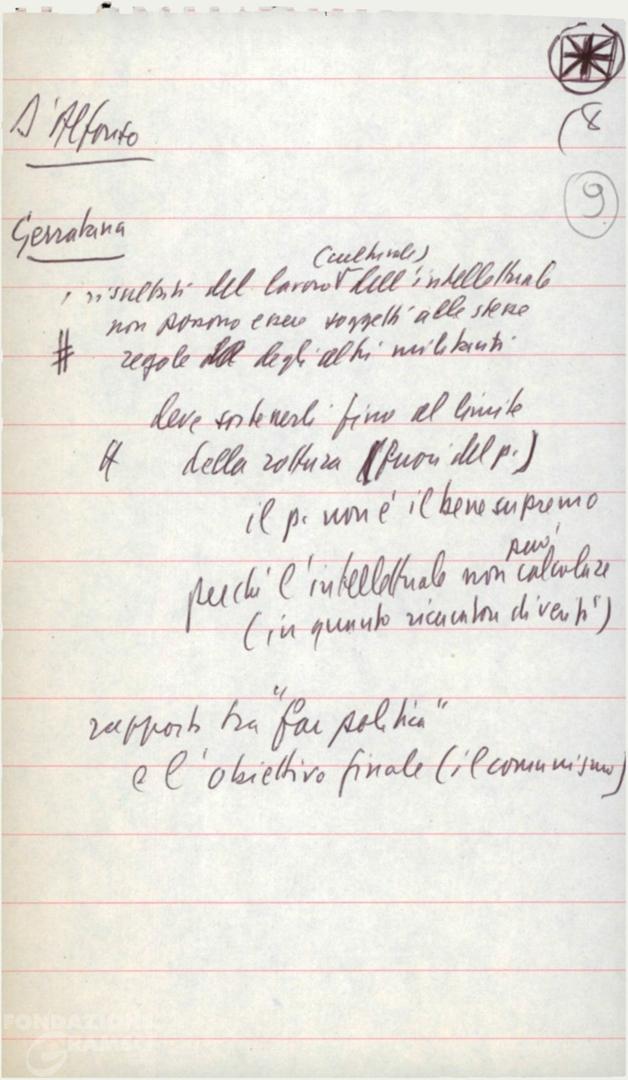 (8
9
D'Alfonso
Gerratana
(culturale)
i risultati del lavoro dell'intellettuale
non possono essere soggetti alle stesse
# regole degli altri militanti
deve sostenerli fino al limite
# della rottura (fuori del p.)
il p. non è il bene supremo
può
perché l'intellettuale non calcolare
(in quanto ricercatore di verità)
rapporto tra "far politica"
e l'obiettivo finale (il comunismo)
FONDAZIONE
GRAMSCI